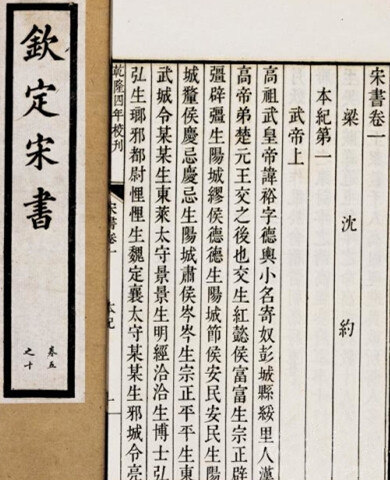 欽定宋書
卷五
之十
宋書卷一
梁 沈 約
本紀第一
武帝上
高祖武皇帝諱裕字德輿小名寄奴彭城縣綏里人漢
高帝弟楚元王交之後也交生紅懿侯富富生宗正辟
彊辟彊生陽城繆侯德德生陽城節侯安民安民生陽
城釐侯慶忌慶忌生陽城肅侯岑岑生宗正平平生東
武城令某某生東萊太守景景生明經洽洽生博士弘
弘生瑯邪都尉悝悝生魏定襄太守某某生邪城令亮
乾隆四年校刊
宋書卷一 本紀 一